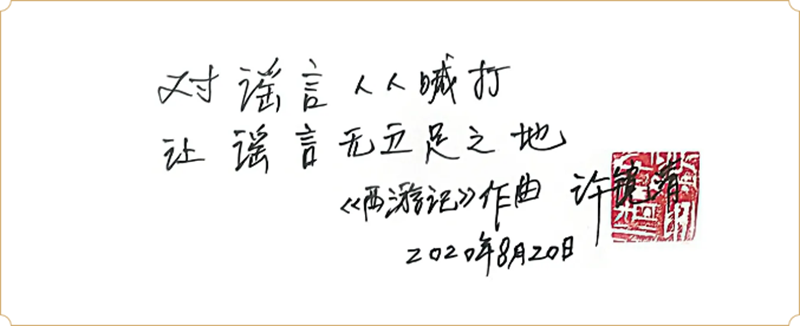 对谣言人人喊打
让谣言无立足之地
《西游记》作曲 许镜清
2020年8月20日